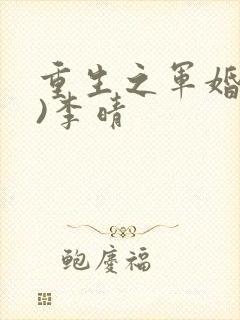 重生之军婚
)李晴
鲍庆福